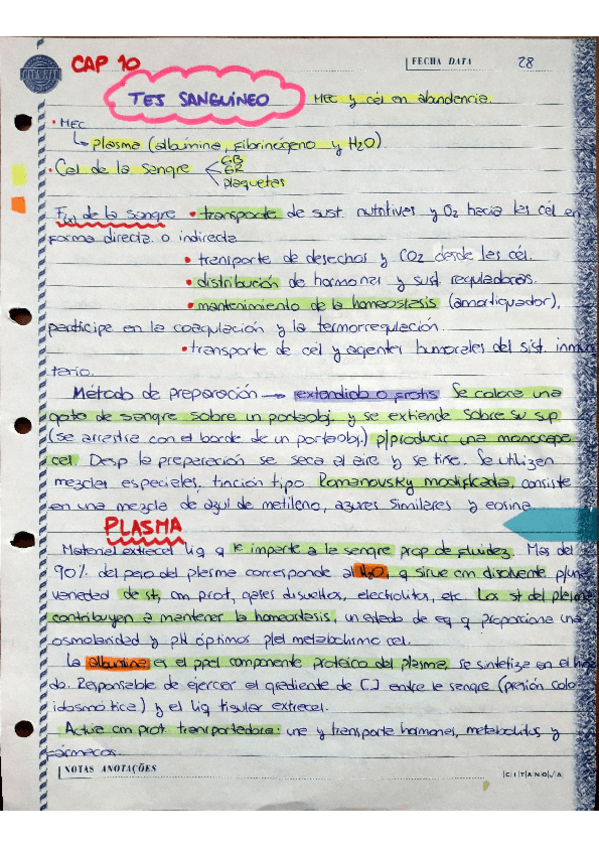 CAP 10
FECHA DATA 28
TEJ SANGUÍNEO
MEC y cél en abundancia.
• MEC
↳ plasma (albúmina, fibrinógeno y H2O).
• Cél de la sangre < GB
GR
plaquetas
F(x) de la sangre • transporte de sust. nutritivas y O2 hacia las cél en
forma directa o indirecta
• transporte de desechos y CO2 desde las cél.
• distribución de hormonas y sust reguladoras.
• mantenimiento de la homeostasis (amortiguador),
participa en la coagulación y la termorregulación.
• transporte de cél y agentes humorales del sist. inmuni
tario.
Método de preparación → extendido o frotis Se coloca una
gota de sangre sobre un portaobj. y se extiende sobre su sup
(se arrastra con el borde de un portaobj.) p/producir una monocapa
cel. Desp la preparación se seca al aire y se tiñe. Se utilizan
mezclas especiales, tinción tipo Romanovsky modificada, consiste
en una mezcla de azul de metileno, azures similares y eosina.
PLASMA
Material extracel líq q le imparte a la sangre prop de fluidez. Más del
90% del peso del plasma corresponde al H2O, q sirve cm disolvente p/una
variedad de st, cm prot, gases disueltos, electrolitos, etc. Los st del plasma
contribuyen a mantener la homeostasis, un estado de eq q proporciona una
osmolaridad y pH óptimos p/el metabolismo cel.
La albúmina es el ppal componente proteico del plasma, se sintetiza en el híga
do. Responsable de ejercer el gradiente de [ ] entre la sangre (presión colo
idosmótica) y el líq tisular extracel.
Actúa cm prot. transportadora: une y transporta hormonas, metabolitos y
fármacos.
NOTAS ANOTAÇÕES
|C|I|T|A|N|O|V|A